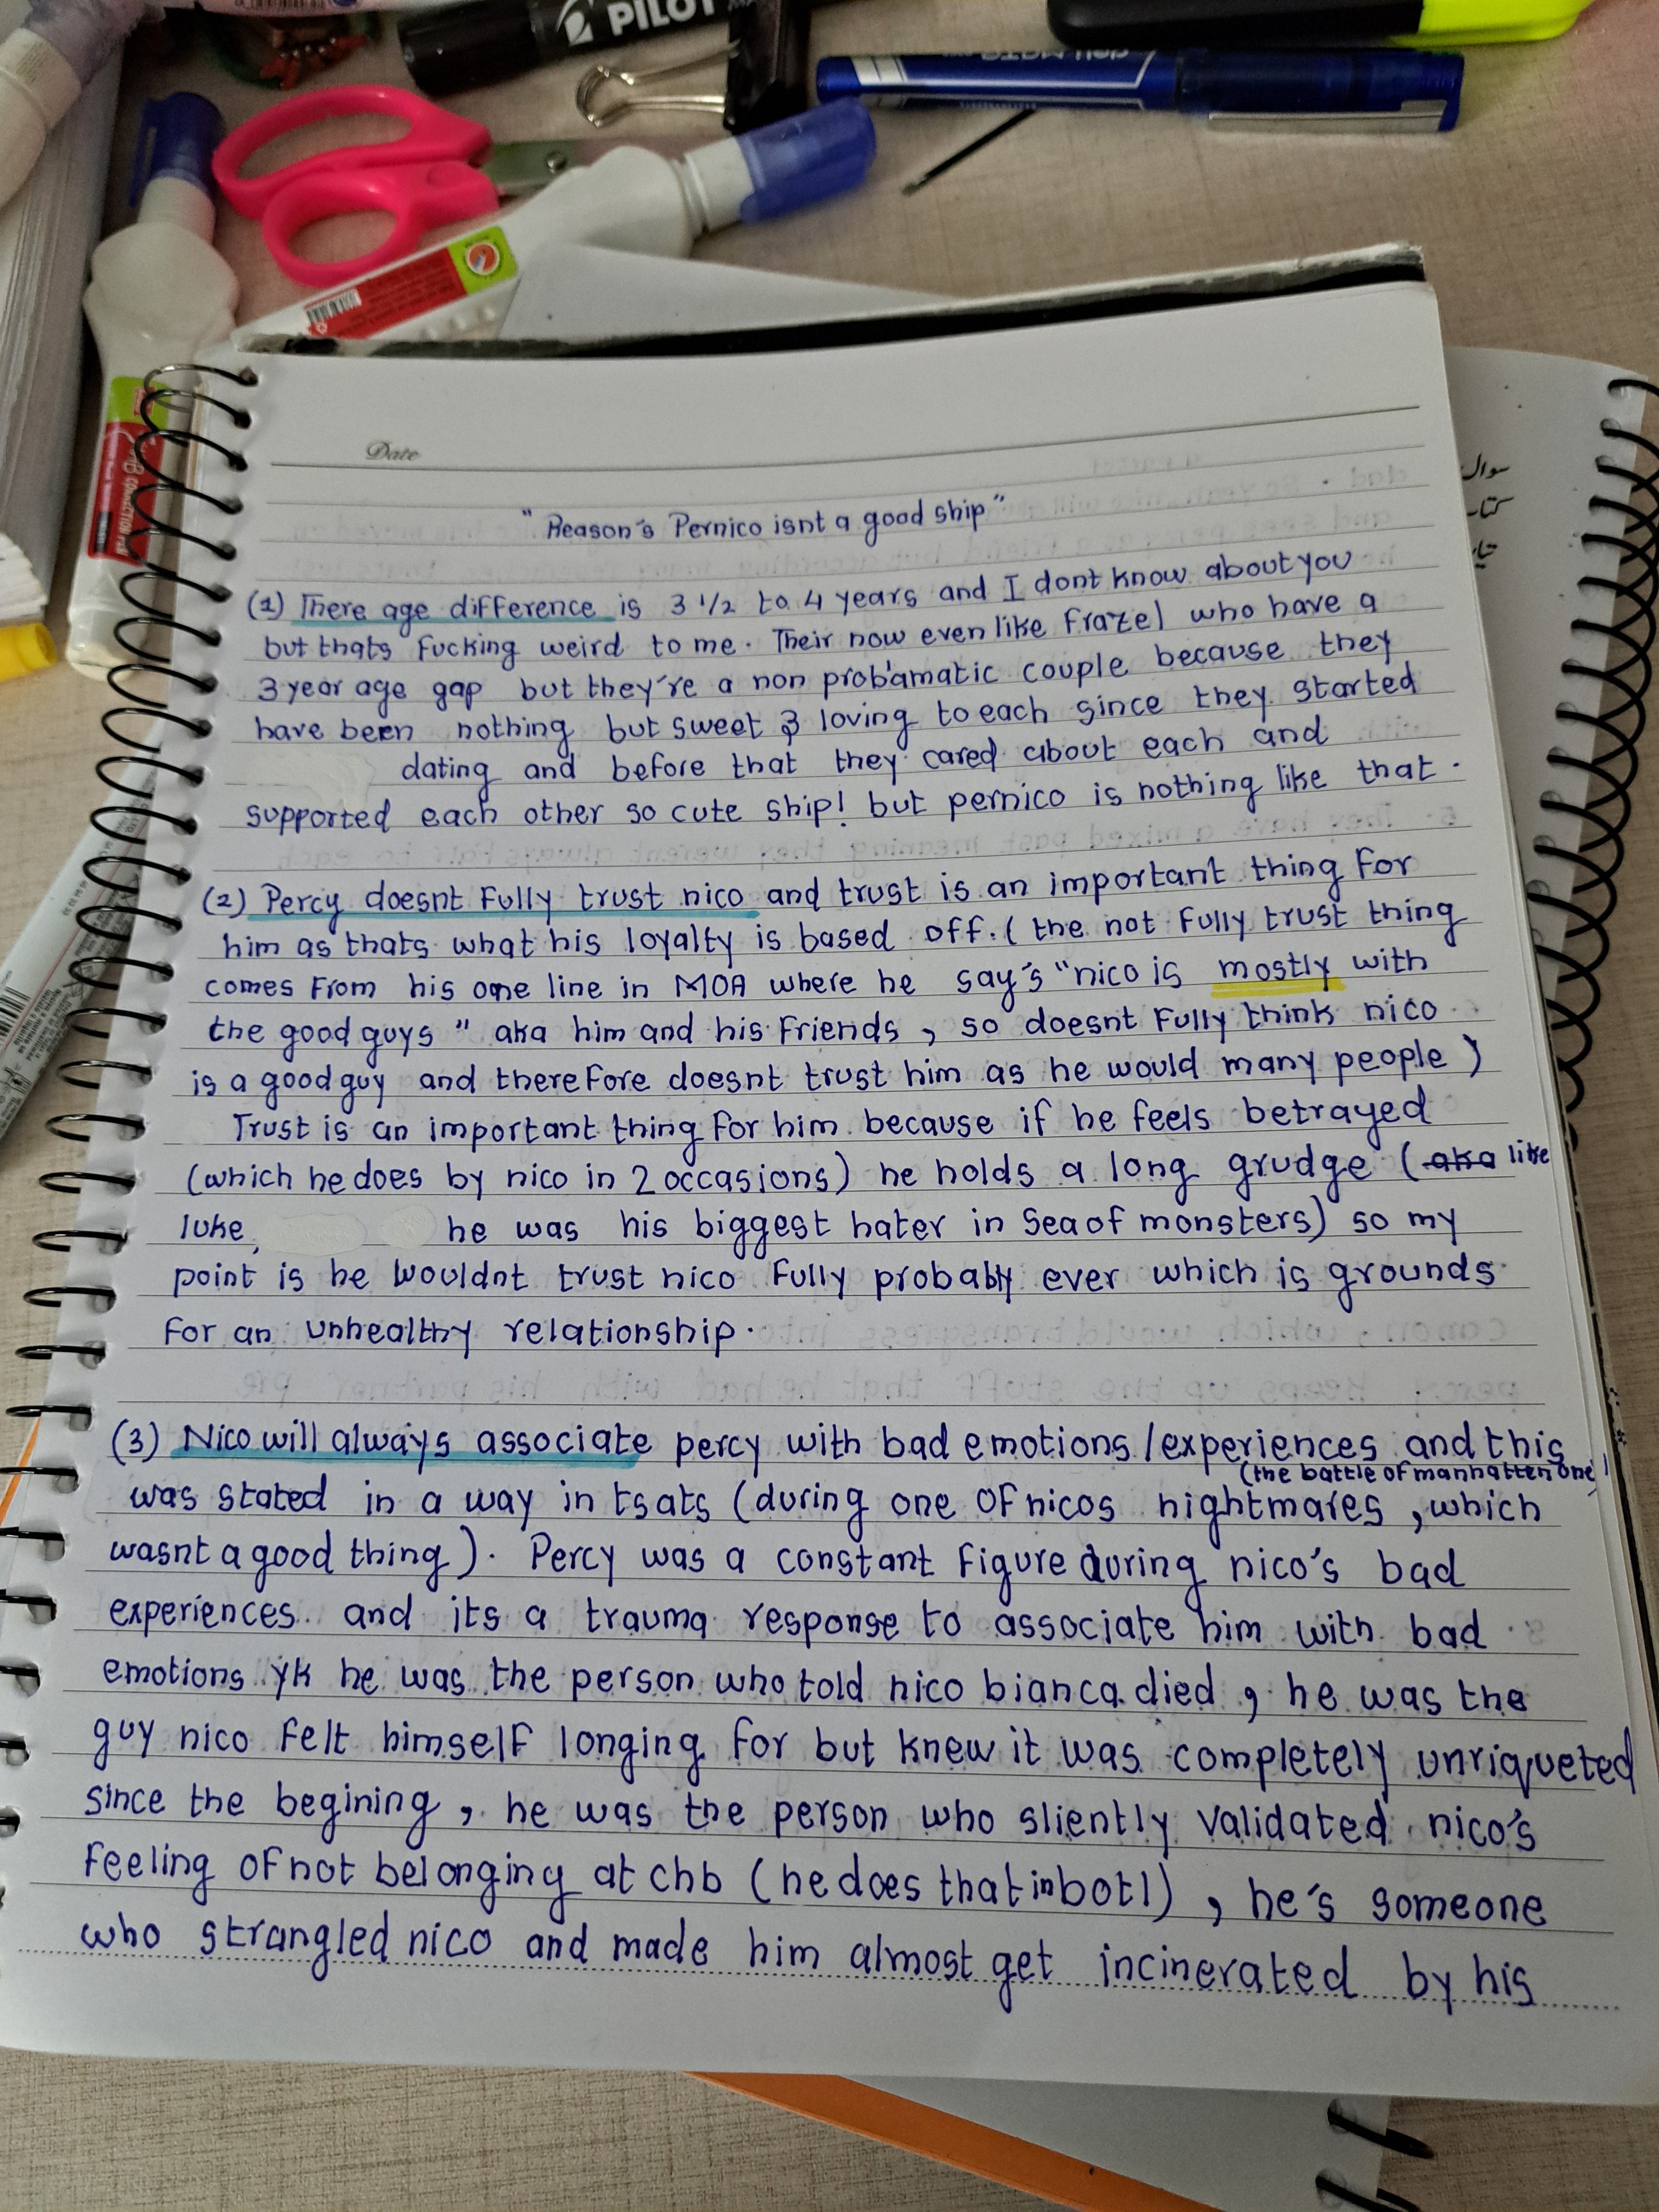 PILOT
Date
" Reason's Pernico isnt a good ship"
(1) There age difference is 3 1/2 to 4 years and I dont know about you
but thats fucking weird to me. Their now even like frazel who have a
3 year age gap but they're a non prob'amatic couple because they
have been nothing but sweet & loving to each since they started
dating and before that they cared about each and
supported each other so cute ship! but pernico is nothing like that.
(2) Percy doesnt fully trust nico and trust is an important thing for
him as thats what his loyalty is based off. ( the not fully trust thing
comes from his one line in MOA where he say's "nico is mostly with
the good guys " aka him and his friends , so doesnt fully think nico
is a good guy and therefore doesnt trust him as he would many people )
Trust is an important thing for him because if he feels betrayed
(which he does by nico in 2 occasions) he holds a long grudge ( aka like
luke, he was his biggest hater in sea of monsters) so my
point is he wouldnt trust nico fully probably ever which is grounds
for an unhealthy relationship.
(3) Nico will always associate percy with bad emotions /experiences and this
(the battle of manhatten one)
was stated in a way in tsats (during one of nicos nightmares , which
wasnt a good thing ). Percy was a constant figure during nico's bad
experiences and its a trauma response to associate him with bad
emotions yk he was the person who told nico bianca died , he was the
guy nico felt himself longing for but knew it was completely unriqueted
since the begining , he was the person who sliently validated nico's
feeling of not belonging at chb ( he does that in botl) , he's someone
who strangled nico and made him almost get incinerated by his
سوال